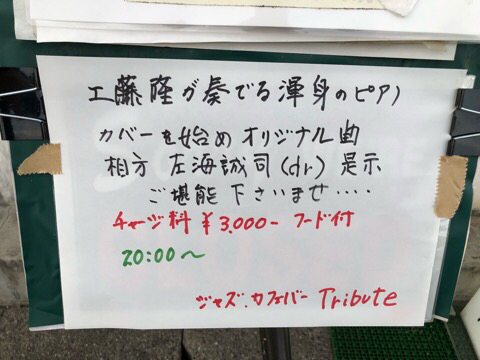 工藤隆が奏でる渾身のピアノ
カバーを始めオリジナル曲
相方 左海誠司(dr) 是示
ご堪能下さいませ‥‥
チャージ料 ¥3,000- フード付
20:00〜
ジャズ.カフェバー Tribute